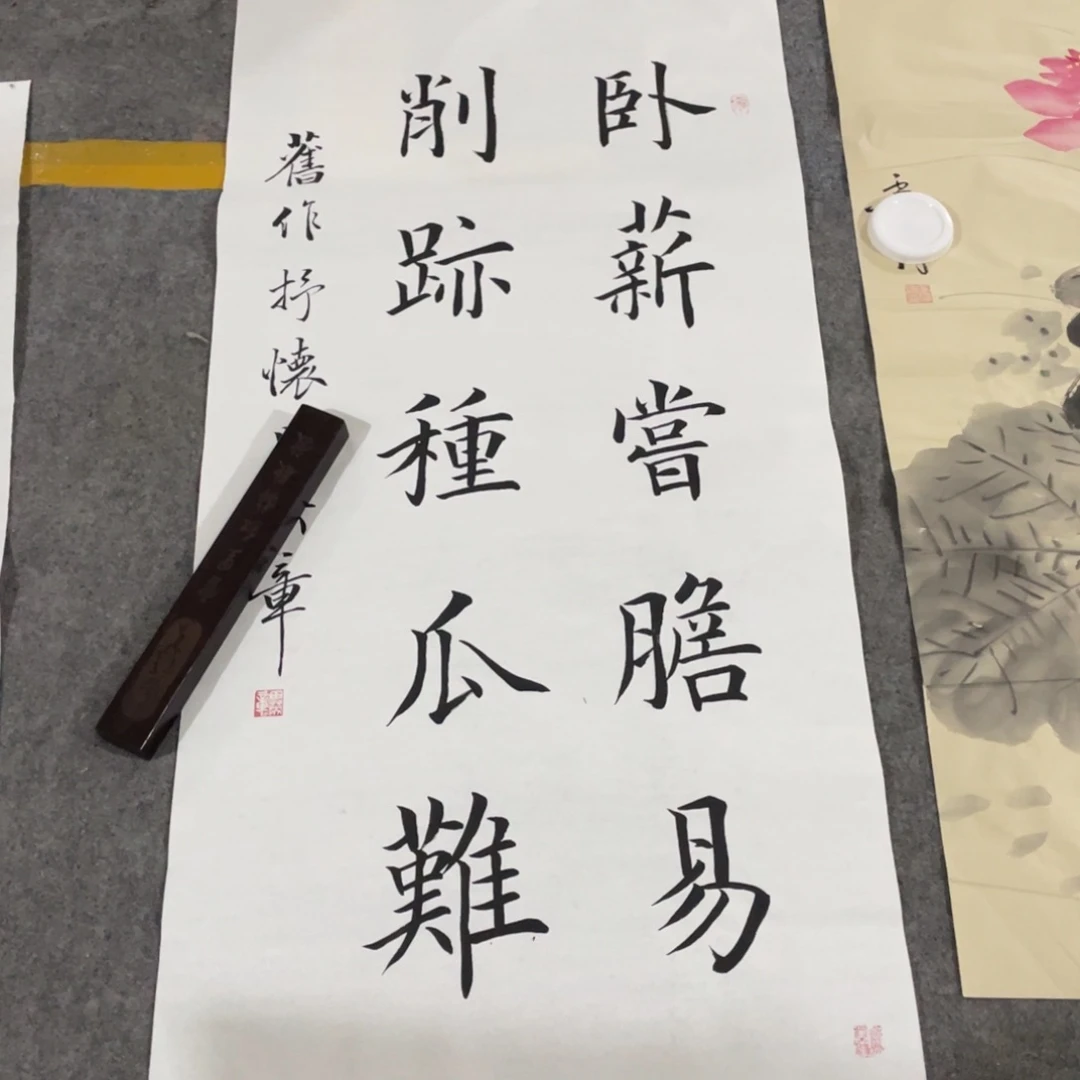 卧薪嘗膽易
削跡種瓜難
舊作抒懷
章